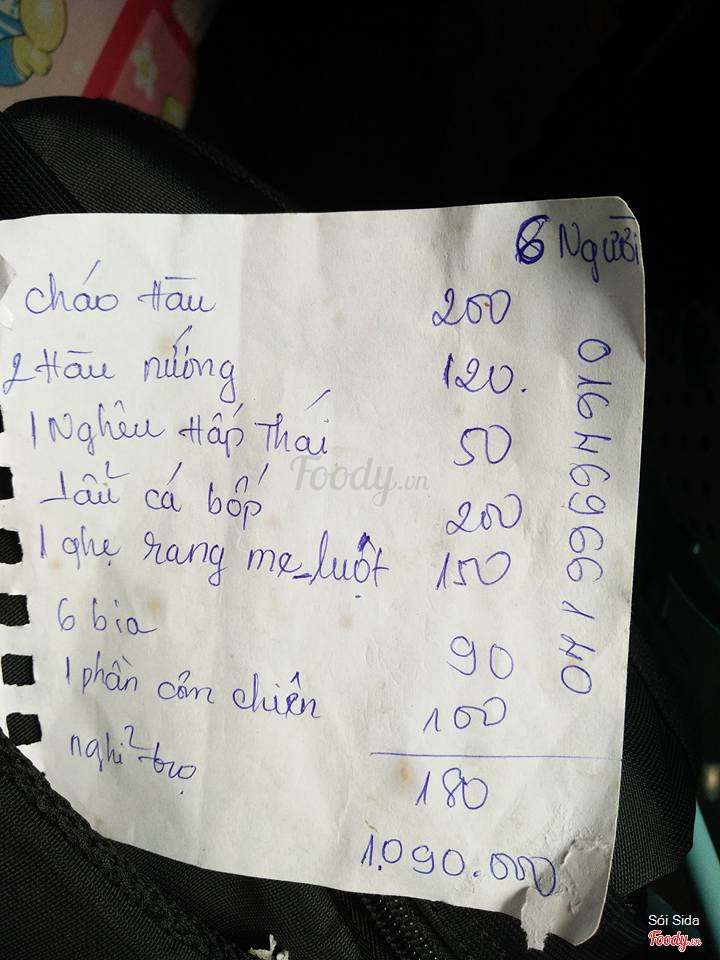 6 Người
cháo Hàu 200
2 Hàu nướng 120.
1 Nghêu Hấp Thái 50
1 lẩu cá bốp 200
1 ghẹ rang me_luột 150
6 bia 90
1 phần cơm chiên 100
nghỉ trọ 180
1.090.000
01646966140
Foody.vn
Sói Sida
Foody.vn